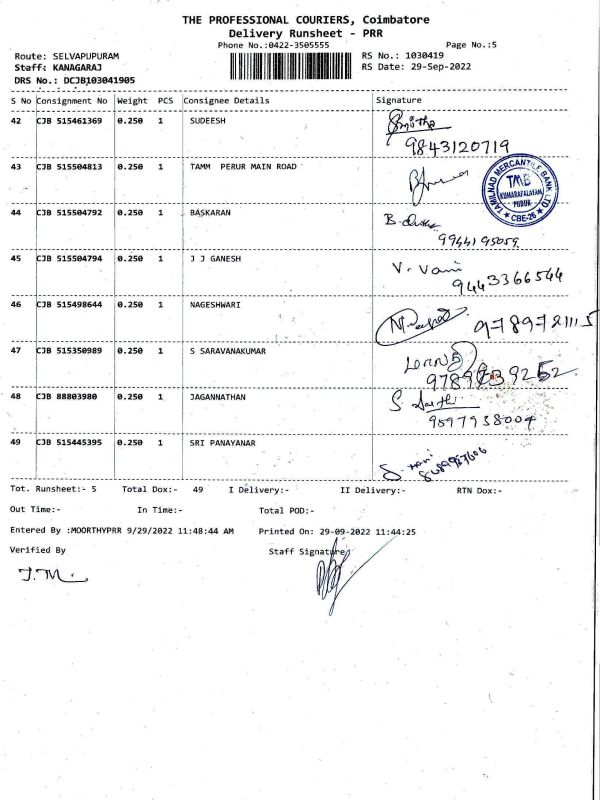 THE PROFESSIONAL COURIERS, Coimbatore
Delivery Runsheet - PRR
Phone No.:0422-3505555 Page No.:5
Route: SELVAPUPURAM RS No.: 1030419
Staff: KANAGARAJ RS Date: 29-Sep-2022
DRS No.: DCJB103041905
S No Consignment No Weight PCS Consignee Details Signature
42 CJB 515461369 0.250 1 SUDEESH
9843120719
43 CJB 515504813 0.250 1 TAMM PERUR MAIN ROAD
TAMILNAD MERCANTILE BANK LTD
TMB
KUMARAPALAYAM
PUDUR
CBE-26
44 CJB 515504792 0.250 1 BASKARAN B.
9944195059
45 CJB 515504794 0.250 1 J J GANESH V. Vani
9443366544
46 CJB 515498644 0.250 1 NAGESHWARI
9789721115
47 CJB 515350989 0.250 1 S SARAVANAKUMAR
48 CJB 88803980 0.250 1 JAGANNATHAN S.
9597938004
49 CJB 515445395 0.250 1 SRI PANAYANAR
S. mani
Tot. Runsheet:- 5 Total Dox:- 49 I Delivery:- II Delivery:- RTN Dox:-
Out Time:- In Time:- Total POD:-
Entered By :MOORTHYPRR 9/29/2022 11:48:44 AM Printed On: 29-09-2022 11:44:25
Verified By Staff Signature
J.M.